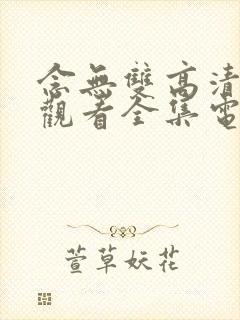 念無雙高清
觀看全集電
萱草妖花